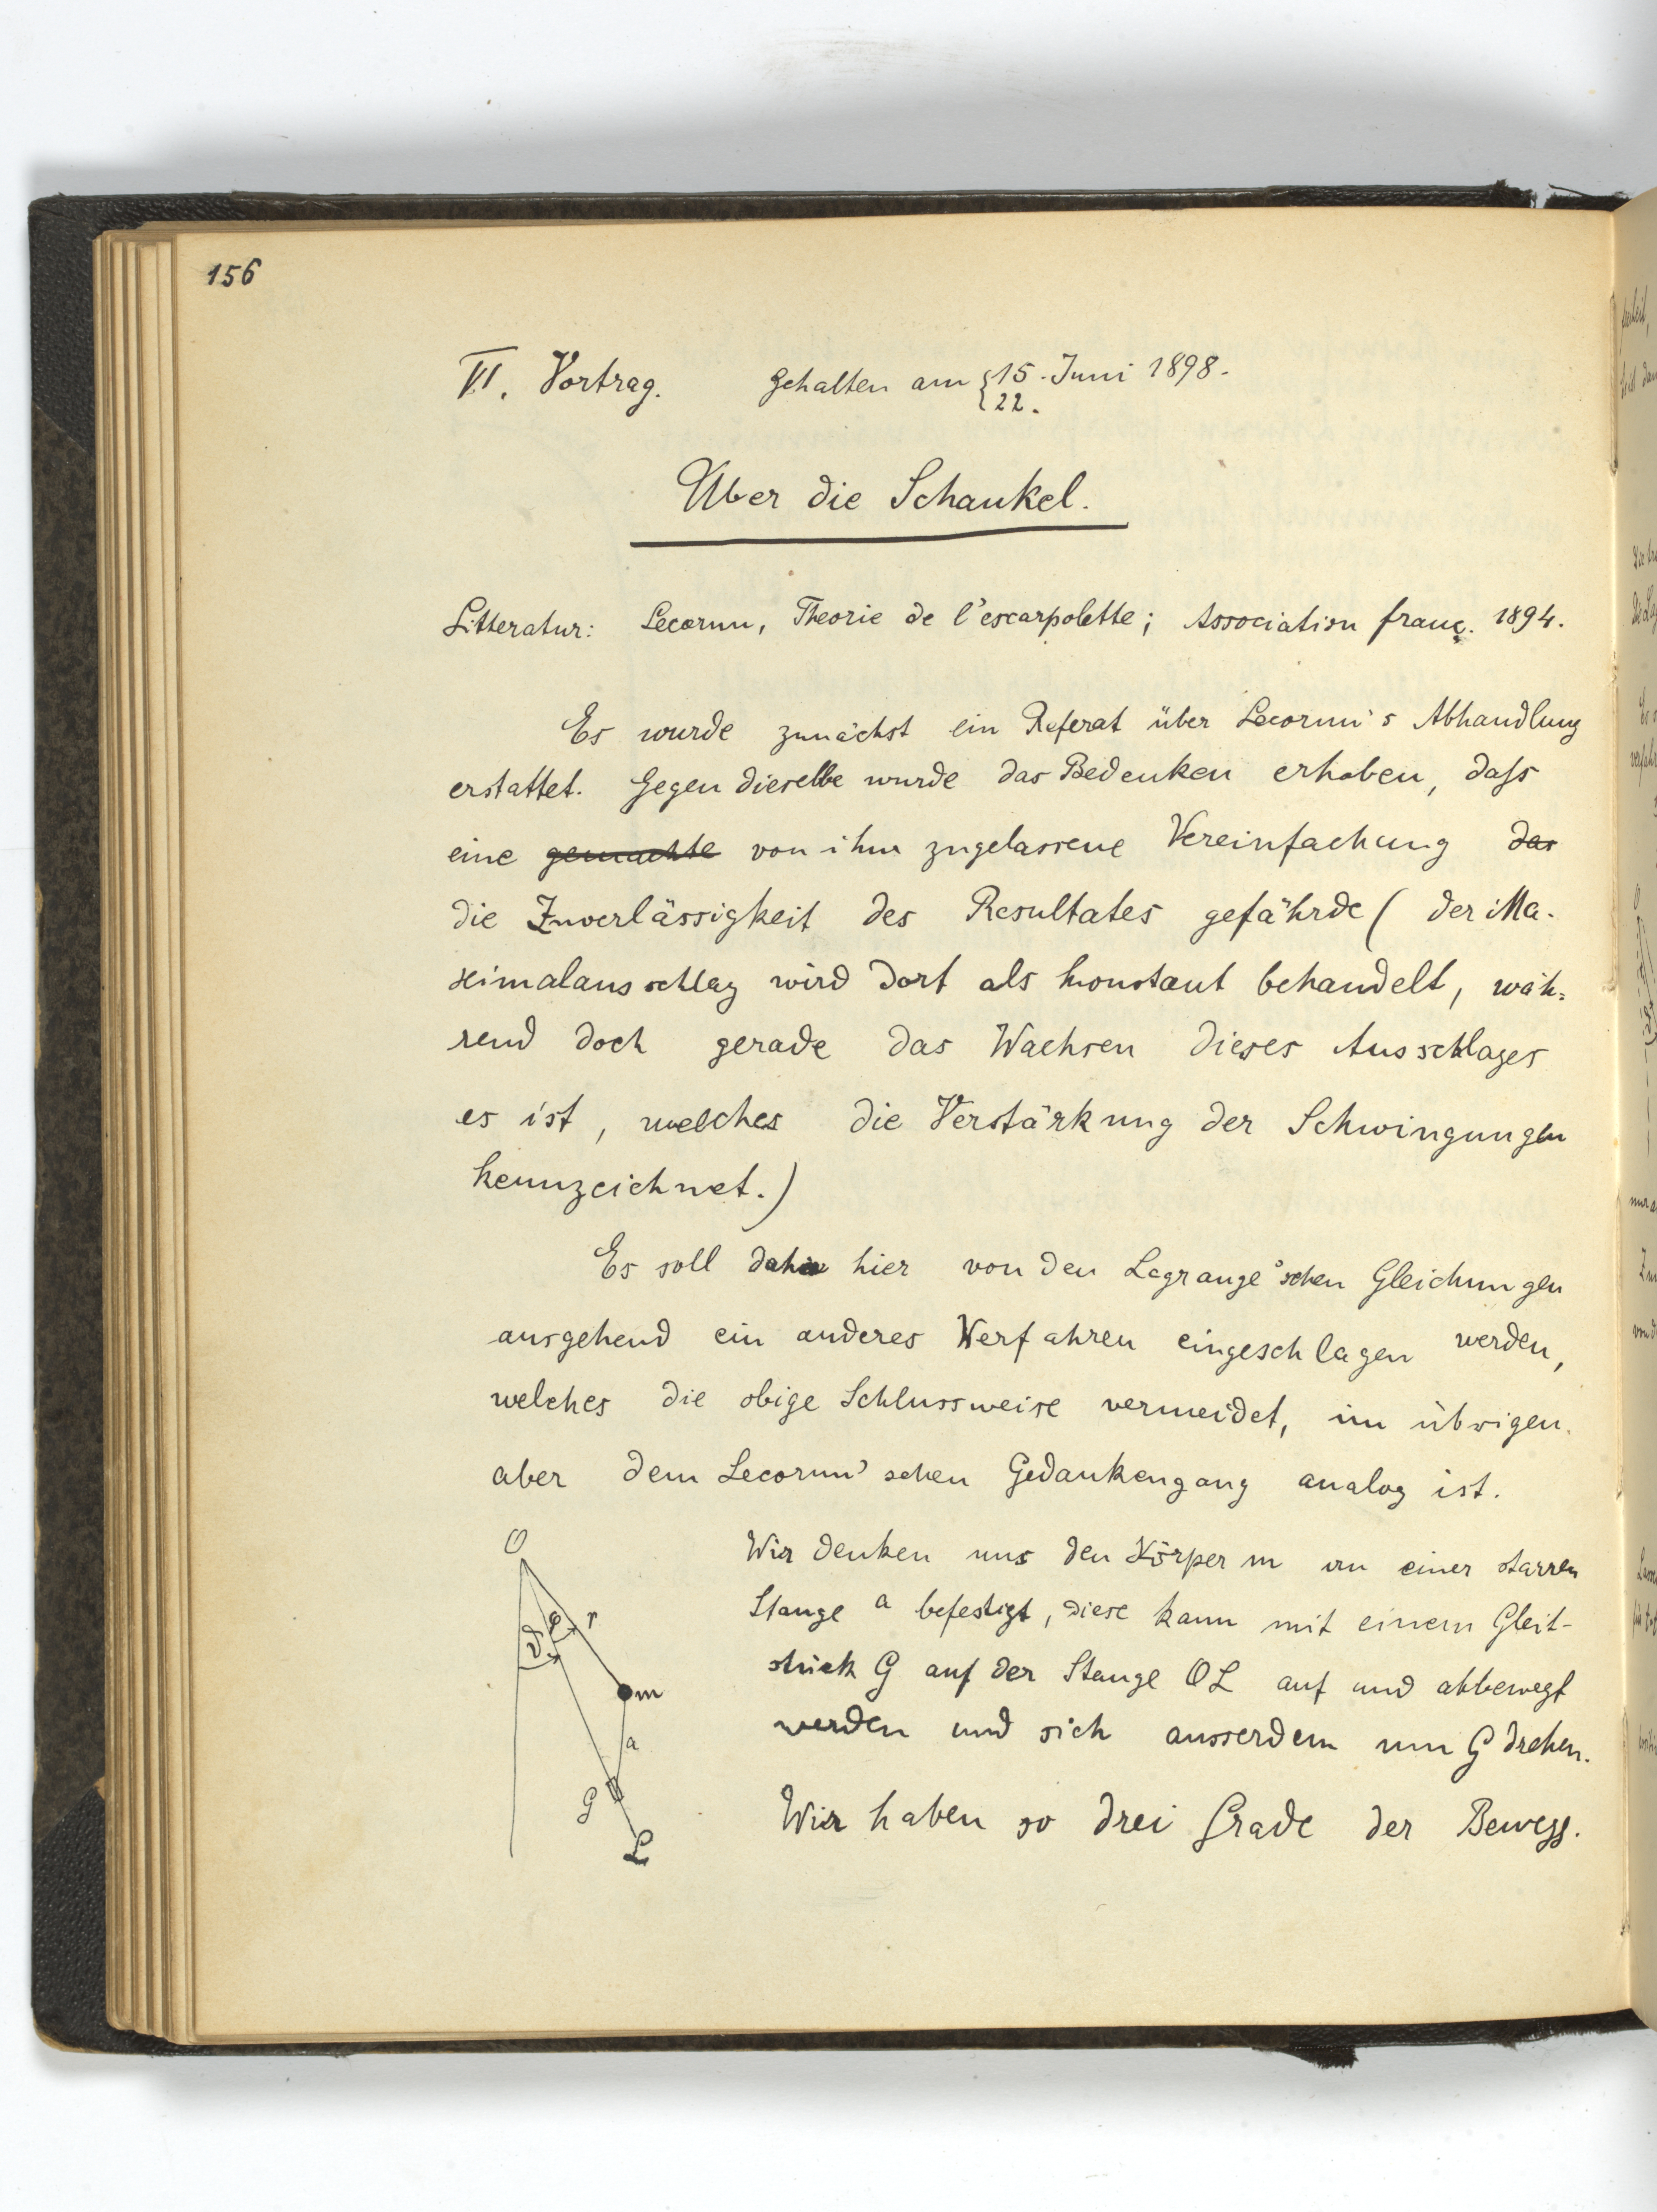 156
VI. Vortrag. gehalten am {15. Juni 1898.
{22.
Über die Schaukel.
Litteratur: Lecornu, Theorie de l'escarpolette; Association franç. 1894.
Es wurde zunächst ein Referat über Lecornu's Abhandlung
erstattet. Gegen dieselbe wurde das Bedenken erhoben, daſs
eine gemachte von ihm zugelassene Vereinfachung das
die Zuverlässigkeit des Resultates gefährde ( der Ma-
ximalausschlag wird dort als konstant behandelt, wäh-
rend doch gerade das Wachsen dieses Ausschlages
es ist, welches die Verstärkung der Schwingungen
kennzeichnet.)
Es soll hier von den Lagrange'schen Gleichungen
ausgehend ein anderes Verfahren eingeschlagen werden,
welches die obige Schlussweise vermeidet, im übrigen
aber dem Lecornu'schen Gedankengang analog ist.
O
φ r
ϑ
m
a
G
L
Wir denken uns den Körper m an einer starren
Stange a befestigt, diese kann mit einem Gleit-
stück G auf der Stange OL auf und abbewegt
werden und sich ausserdem um G drehen.
Wir haben so drei Grade der Bewegg.